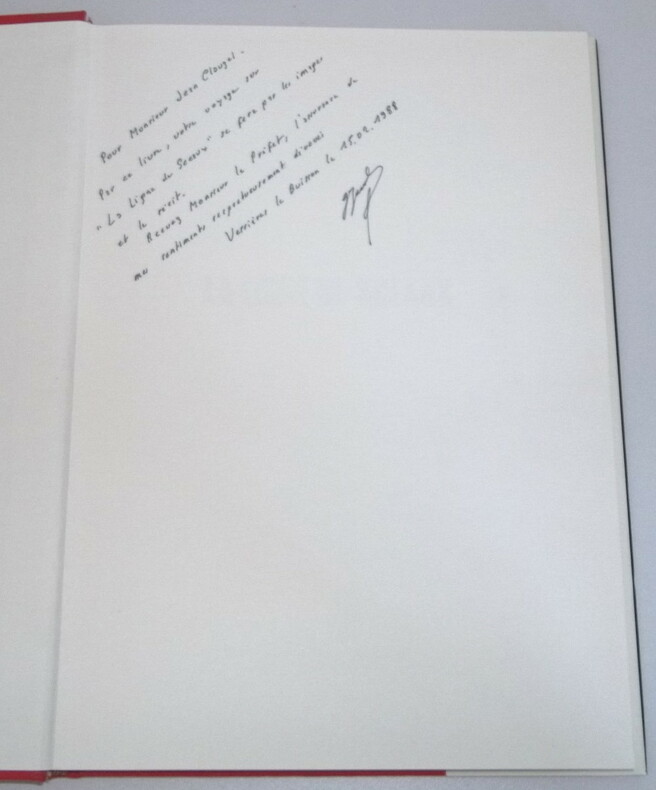 Pour Monsieur Jean Clouzel -
Par ce livre, votre voyage sur
"La Ligne de Sceaux" se fera par les images
et le récit.
Recevez Monsieur le Préfet, l'assurance de
mes sentiments respectueusement dévoués
Verrières le Buisson le 15.02.1988